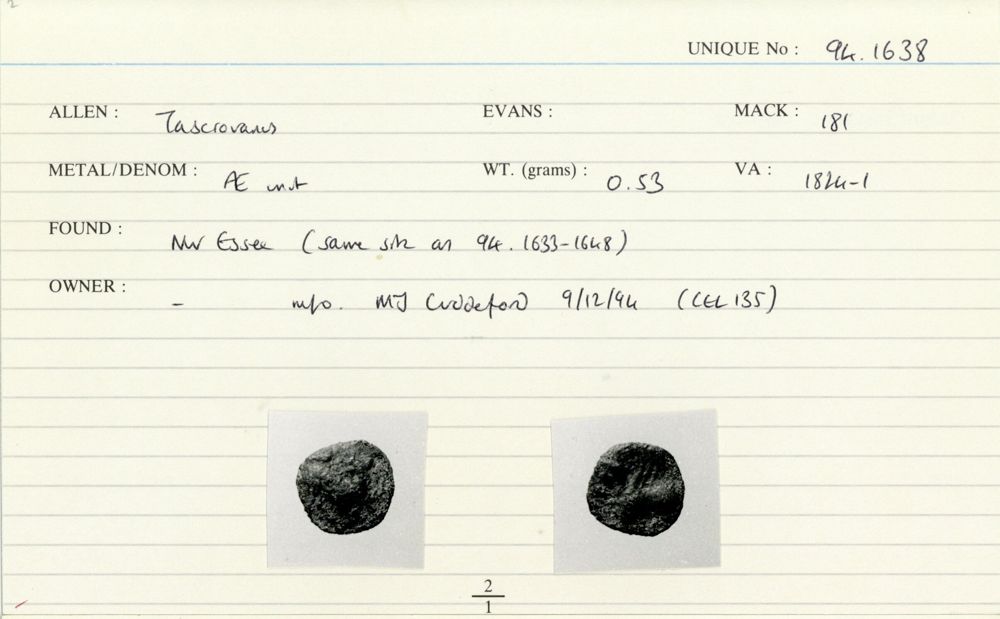 UNIQUE No : 94.1638
ALLEN : Tasciovanus EVANS : MACK : 181
METAL/DENOM : Æ unit WT. (grams) : 0.53 VA : 1824-1
FOUND : NW Essex (same site as 94.1633-1648)
OWNER : - info. MJ Cuddeford 9/12/94 (CEL 135)
2
1